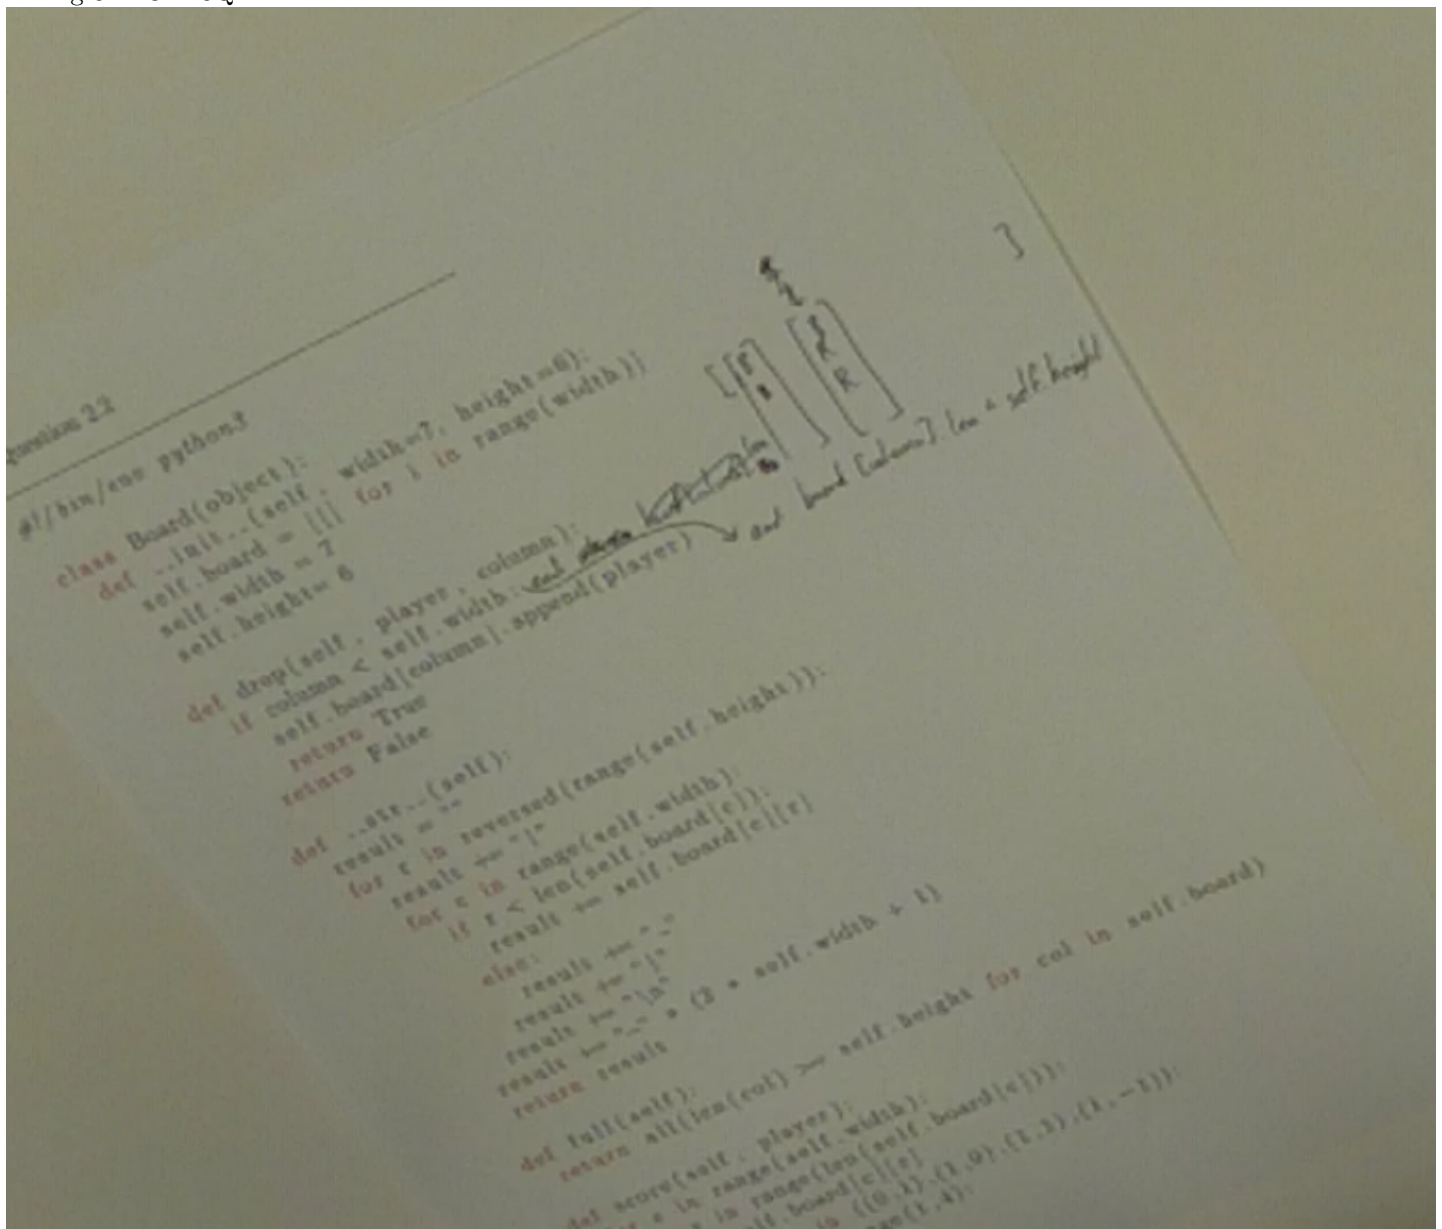 Question 22
#!/bin/env python3
class Board(object):
def __init__(self, width=7, height=6):
self.board = [[] for i in range(width)]
self.width = 7
self.height= 6
def drop(self, player, column):
if column < self.width: and
and board [column]. len < self.height
self.board[column].append(player)
return True
return False
def __str__(self):
result = ""
for r in reversed(range(self.height)):
result += "|"
for c in range(self.width):
if r < len(self.board[c]):
result += self.board[c][r]
else:
result += "_"
result += "|"
result += "\n"
result += "-" * (2 * self.width + 1)
return result
def full(self):
return all(len(col) >= self.height for col in self.board)
def score(self, player):
for c in range(self.width):
r in range(len(self.board[c])):
self.board[c][r]
in ((0,1),(1,0),(1,1),(1,-1)):
range(1,4):